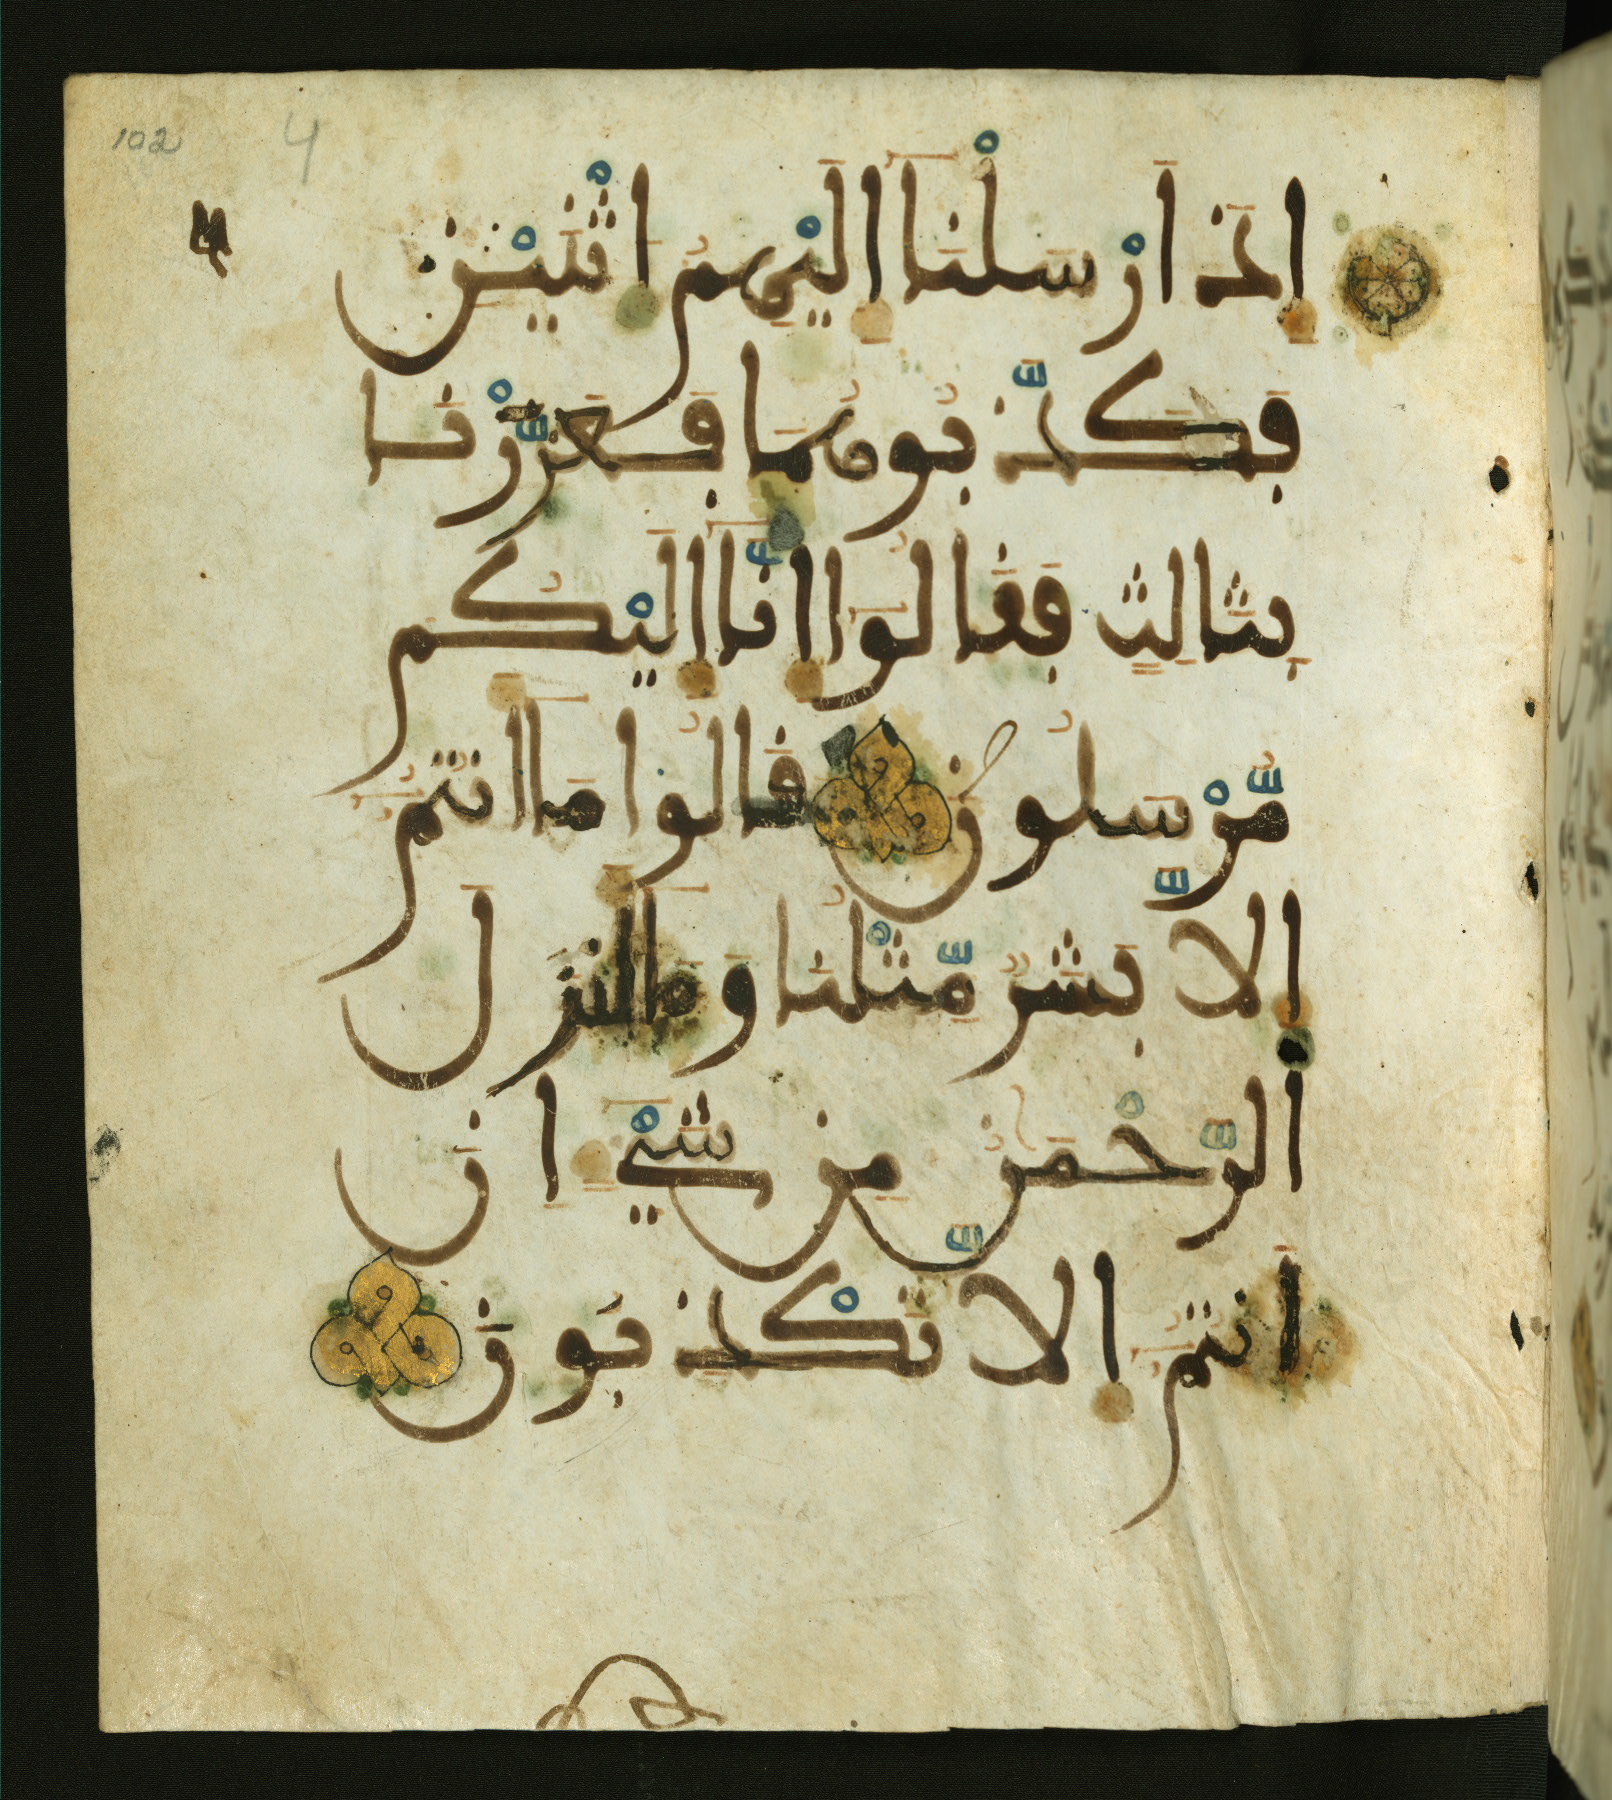 102 4
إِذَ ارْسَلْنَا إِلَيْهِمُ اثْنَيْنِ
فَكَذَّبُوهُمَا فَعَزَّزْنَا
بِثَالِثٍ فَقَالُوا إِنَّا إِلَيْكُم
مُّرْسَلُونَ قَالُوا مَا أَنتُمُ
إِلَّا بَشَرٌ مِّثْلُنَا وَمَا أَنزَلَ
الرَّحْمَنُ مِن شَيْءٍ إِنَ
انتُمُ إِلَّا تَكْذِبُونَ